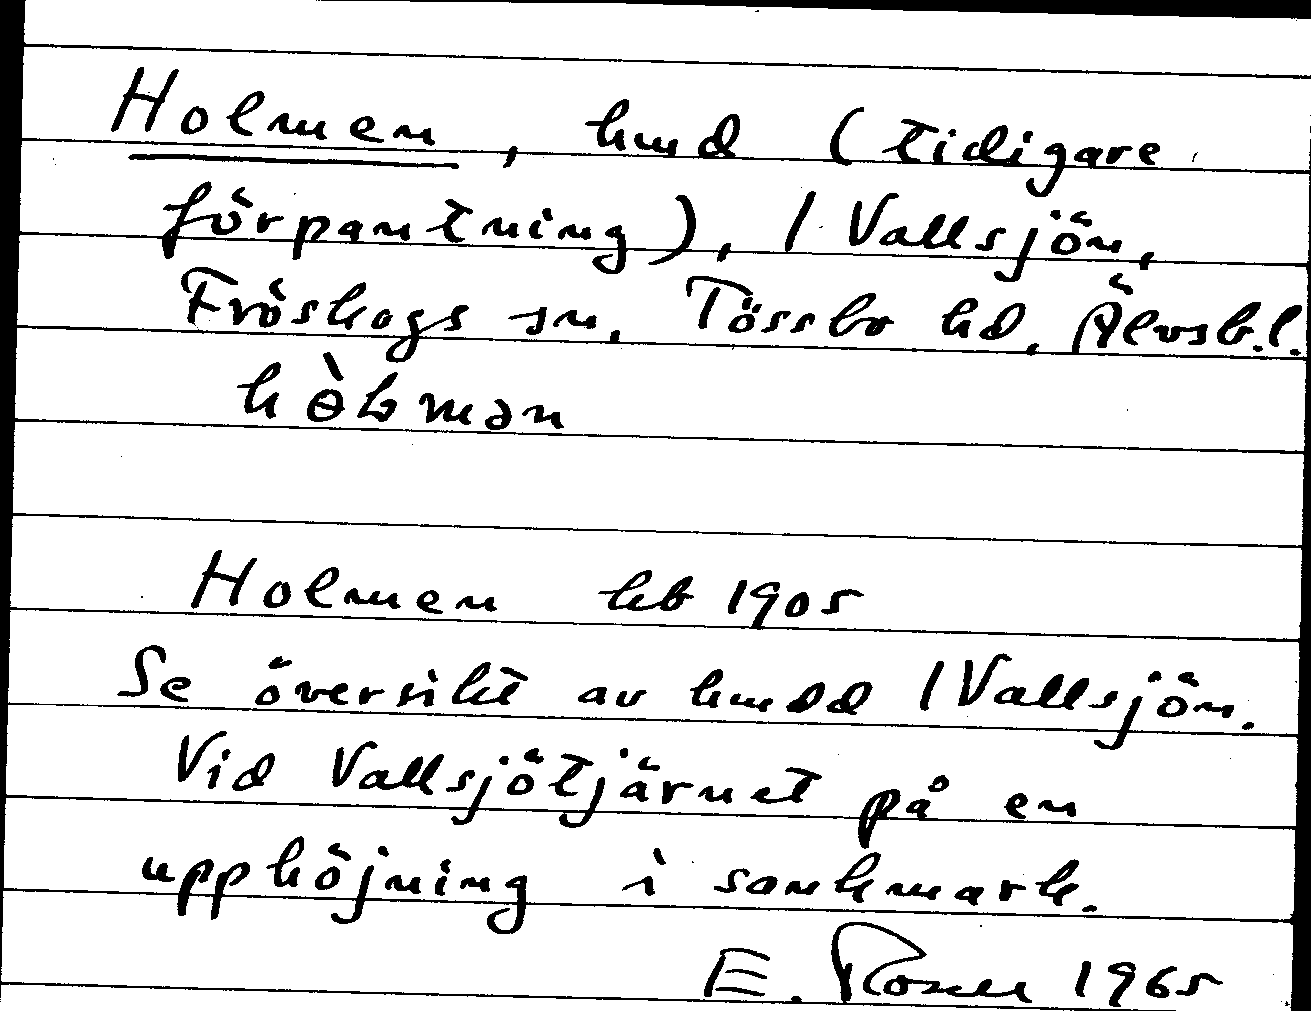 Holmen, hmd (tidigare
förpantning), /Vallsjön,
Fröskogs sn, Tössbo hd, Älvsb.l.
hòlman
Holmen hb 1905
Se översikt av hmdd /Vallsjön.
Vid Vallsjötjärnet på en
upphöjning i sankmark.
E. 1965